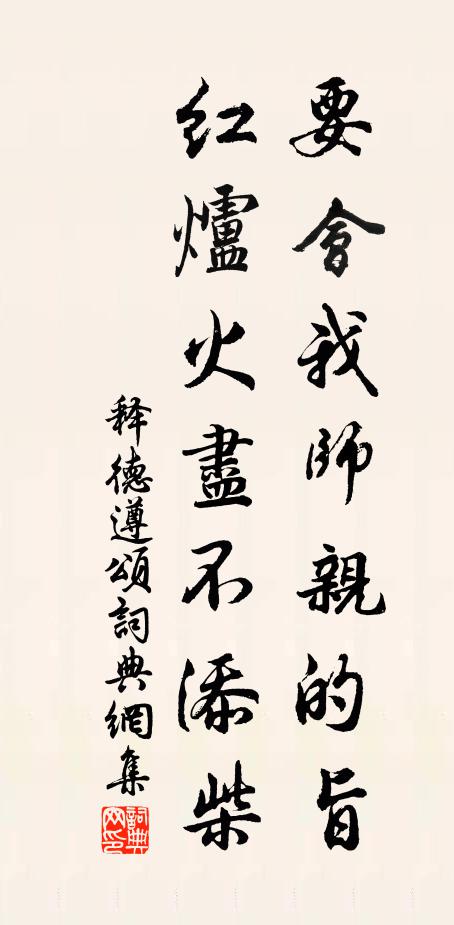 要會我師親的旨
紅爐火盡不添柴
释德遵頌詞典網集
詞典
网印